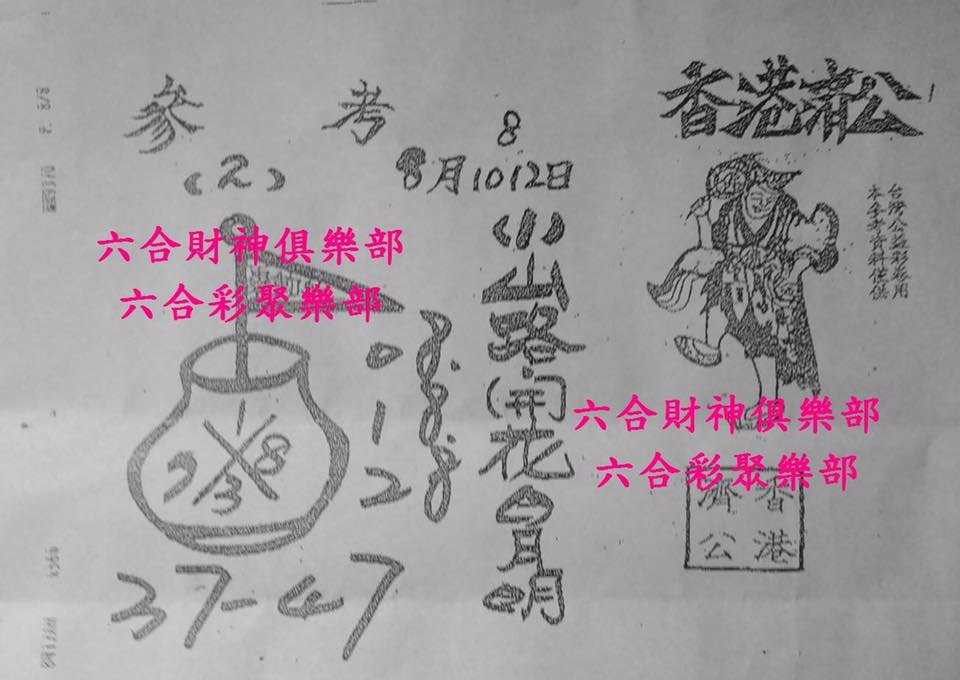 香港濟公
台灣公益彩卷用
本參考資料僅供
參考
8
8月1012日
(2)
小山路開花
六合財神俱樂部
六合彩聚樂部
0
1
2
1
7 8
3
37-47
六合財神俱樂部
六合彩聚樂部
香港
濟公